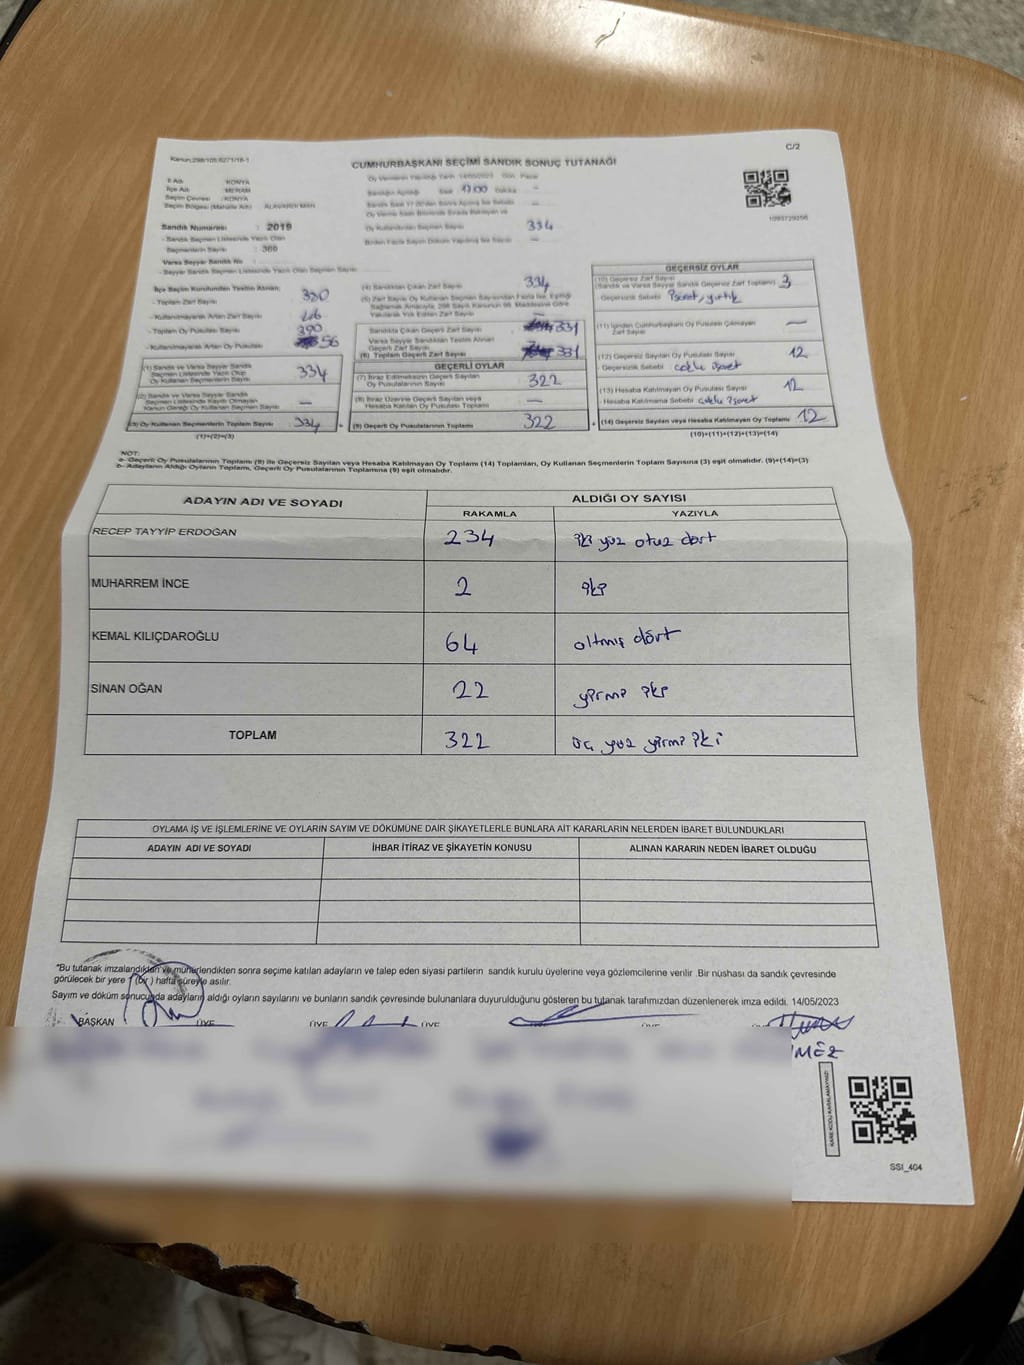 Kanun:298/105;6271/18-1
C/2
CUMHURBAŞKANI SEÇİMİ SANDIK SONUÇ TUTANAĞI
İl Adı : KONYA
İlçe Adı : MERAM
Seçim Çevresi : KONYA
Oy Verme
17:00
1093729256
Sandık Numarası : 2019
334
- Sandık Seçmen Listesinde Yazılı Olan
Seçmenlerin Sayısı : 386
Varsa Seyyar Sandık No
- Seyyar Sandık Seçmen Listesinde Yazılı Olan Seçmen Sayısı
İlçe Seçim Kurulundan Teslim Alınan;
- Toplam Zarf Sayısı
- Kullanılmayarak Artan Zarf Sayısı
- Toplam Oy Pusulası Sayısı 390
- Kullanılmayarak Artan Oy Pusulası 56
(1) Sandık ve Varsa Seyyar Sandık
Seçmen Listesinde Yazılı Olup
Oy Kullanan Seçmenlerin Sayısı 334
(2) Sandık ve Varsa Seyyar Sandık
Seçmen Listesinde Kayıtlı Olmayan
Kanun Gereği Oy Kullanan Seçmen Sayısı —
(3) Oy Kullanan Seçmenlerin Toplam Sayısı 334
(1)+(2)=(3)
(4) Sandıktan Çıkan Zarf Sayısı 334
Sandıkta Çıkan Geçerli Zarf Sayısı 331
Varsa Seyyar Sandıktan Teslim Alınan
Geçerli Zarf Sayısı
(6) Toplam Geçerli Zarf Sayısı 331
GEÇERLİ OYLAR
(7) İtiraz Edilmeksizin Geçerli Sayılan
Oy Pusulalarının Sayısı 322
(8) İtiraz Üzerine Geçerli Sayılan veya
Hesaba Katılan Oy Pusulası Toplamı —
(9) Geçerli Oy Pusulalarının Toplamı 322
GEÇERSİZ OYLAR
(10) Geçersiz Zarf Sayısı 3
(Sandık ve Varsa Seyyar Sandık Geçersiz Zarf Toplamı)
Geçersizlik Sebebi işaret, yırtık
(11) İçinden Cumhurbaşkanı Oy Pusulası Çıkmayan
Zarf Sayısı —
(12) Geçersiz Sayılan Oy Pusulası Sayısı 12
- Geçersizlik Sebebi çoklu işaret
(13) Hesaba Katılmayan Oy Pusulası Sayısı 12
- Hesaba Katılmama Sebebi çoklu işaret
(14) Geçersiz Sayılan veya Hesaba Katılmayan Oy Toplamı 12
(10)+(11)+(12)+(13)=(14)
NOT:
a- Geçerli Oy Pusulalarının Toplamı (9) ile Geçersiz Sayılan veya Hesaba Katılmayan Oy Toplamı (14) Toplamları, Oy Kullanan Seçmenlerin Toplam Sayısına (3) eşit olmalıdır. (9)+(14)=(3)
b- Adayların Aldığı Oyların Toplamı, Geçerli Oy Pusulalarının Toplamına (9) eşit olmalıdır.
ADAYIN ADI VE SOYADI
ALDIĞI OY SAYISI
RAKAMLA YAZIYLA
RECEP TAYYİP ERDOĞAN 234 iki yüz otuz dört
MUHARREM İNCE 2 iki
KEMAL KILIÇDAROĞLU 64 altmış dört
SİNAN OĞAN 22 yirmi iki
TOPLAM 322 üç yüz yirmi iki
OYLAMA İŞ VE İŞLEMLERİNE VE OYLARIN SAYIM VE DÖKÜMÜNE DAİR ŞİKAYETLERLE BUNLARA AİT KARARLARIN NELERDEN İBARET BULUNDUKLARI
ADAYIN ADI VE SOYADI İHBAR İTİRAZ VE ŞİKAYETİN KONUSU ALINAN KARARIN NEDEN İBARET OLDUĞU
*Bu tutanak imzalandıktan ve mühürlendikten sonra seçime katılan adayların ve talep eden siyasi partilerin sandık kurulu üyelerine veya gözlemcilerine verilir .Bir nüshası da sandık çevresinde
görülecek bir yere 1 (bir ) hafta süreyle asılır.
Sayım ve döküm sonucunda adayların aldığı oyların sayılarını ve bunların sandık çevresinde bulunanlara duyurulduğunu gösteren bu tutanak tarafımızdan düzenlenerek imza edildi. 14/05/2023
BAŞKAN ÜYE ÜYE ÜYE
MEZ
KARE KODU KARALAMAYINIZ!
SSI_404